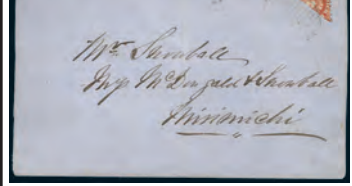 Mr Snowball
Messrs McDougald & Snowball
Mirimichi